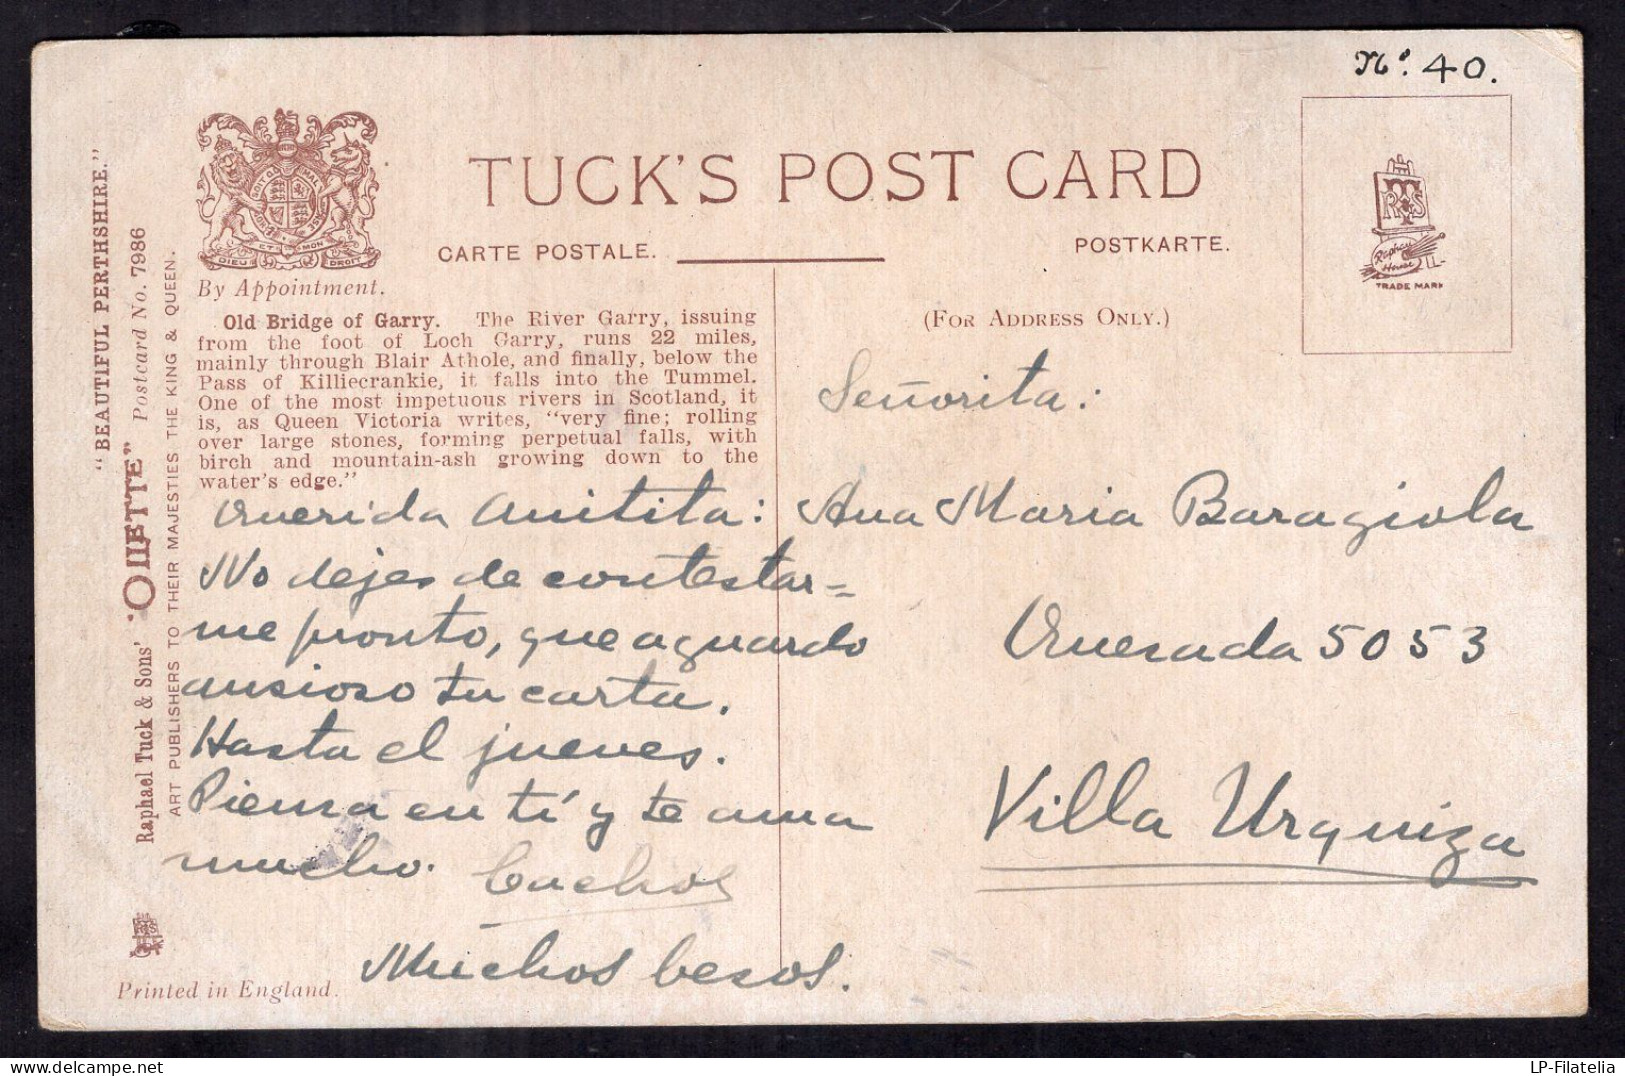 Nº. 40.
TUCK'S POST CARD
CARTE POSTALE.
POSTKARTE.
DIEU ET MON DROIT
By Appointment.
TRS
Raphael
House
TRADE MARK
(FOR ADDRESS ONLY.)
"BEAUTIFUL PERTHSHIRE."
Raphael Tuck & Sons' "OILETTE" Postcard No. 7986
ART PUBLISHERS TO THEIR MAJESTIES THE KING & QUEEN.
Old Bridge of Garry. The River Garry, issuing
from the foot of Loch Garry, runs 22 miles,
mainly through Blair Athole, and finally, below the
Pass of Killiecrankie, it falls into the Tummel.
One of the most impetuous rivers in Scotland, it
is, as Queen Victoria writes, "very fine; rolling
over large stones, forming perpetual falls, with
birch and mountain-ash growing down to the
water's edge."
Querida Anitita:
No dejes de contestar=
me pronto, que aguardo
ansioso tu carta.
Hasta el jueves.
Piensa en tí y te ama
mucho. Cachos
Muchos besos.
Señorita:
Ana Maria Baragiola
Quesada 5053
Villa Urquiza
Printed in England.
LP-Filatelia